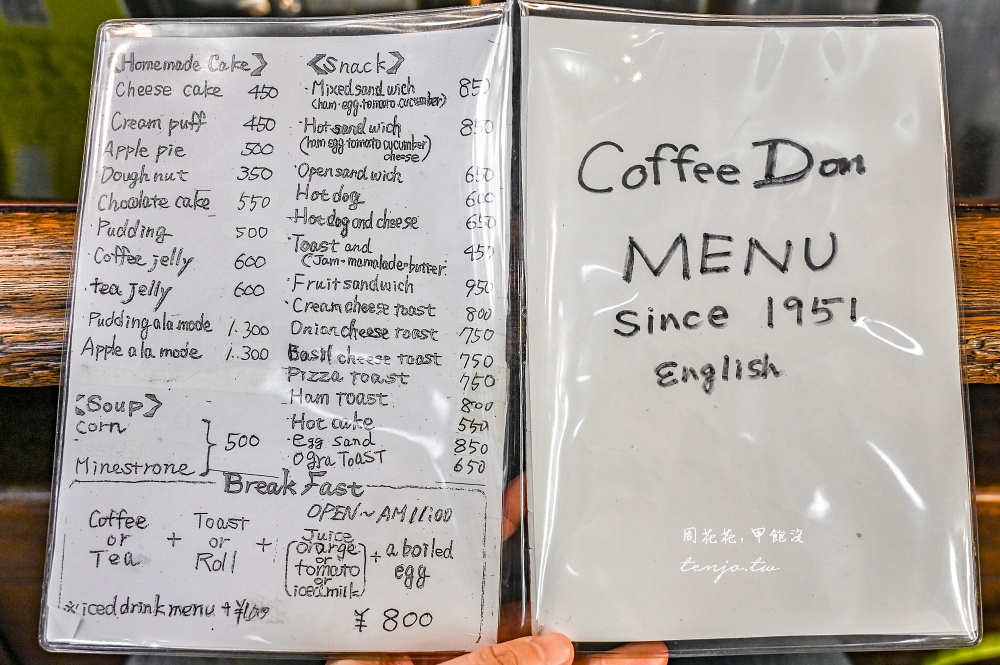 《Homemade Cake》
Cheese cake 450
Cream puff 450
Apple pie 500
Doughnut 350
Chocolate cake 550
Pudding 500
Coffee jelly 600
tea jelly 600
Pudding a la mode 1.300
Apple a la mode 1.300
《Soup》
corn
Minestrone
500
《Snack》
・Mixed sand wich 850
(ham・egg・tomato・cucumber)
・Hot sand wich 850
(ham egg tomato cucumber
cheese)
・Open sand wich 650
Hot dog 600
・Hot dog and cheese 650
Toast and 450
(Jam・mamalade・butter)
・Fruit sandwich 950
・Cream cheese toast 800
Onion cheese toast 750
Basil cheese toast 750
Pizza toast 750
Ham toast 800
・Hot cake 550
・egg sand 850
・Ogra Toast 650
Break Fast
OPEN~AM11:00
Coffee
or
Tea
+
Toast
or
Roll
+
Juice
orange
or
tomato
or
iced milk
+
a boiled
egg
※iced drink menu +¥100
¥800
Coffee Don
MENU
since 1951
English
周花花,甲飽沒
tenjo.tw